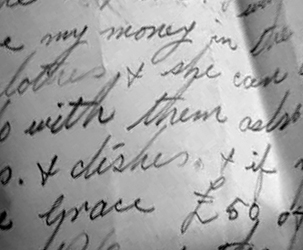 e my money in the
lothes, & she can
o with them as
s. & dishes. & if
e Grace £50 of